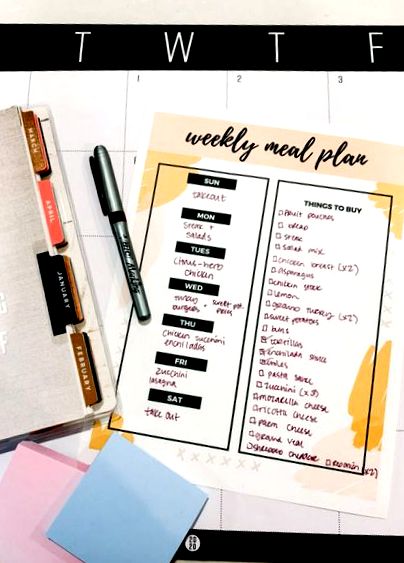 T W T F
1 2 3
MARCH
APRIL
JANUARY
FEBRUARY
weekly meal plan
SUN
takeout
MON
steak +
salads
TUES
citrus-herb
chicken
WED
turkey + sweet pot.
burgers fries
THU
chicken zucchini
enchiladas
FRI
zucchini
lasagna
SAT
take out
THINGS TO BUY
fruit pouches
bread
steak
salad mix
chicken breast (x2)
asparagus
chicken stock
lemon
ground turkey (x2)
sweet potatoes
buns
tortillas
enchilada sauce
chiles
pasta sauce
zucchini (x3)
mozarella cheese
ricotta cheese
parm cheese
ground veal
shredded cheddar
(x2)
20
20